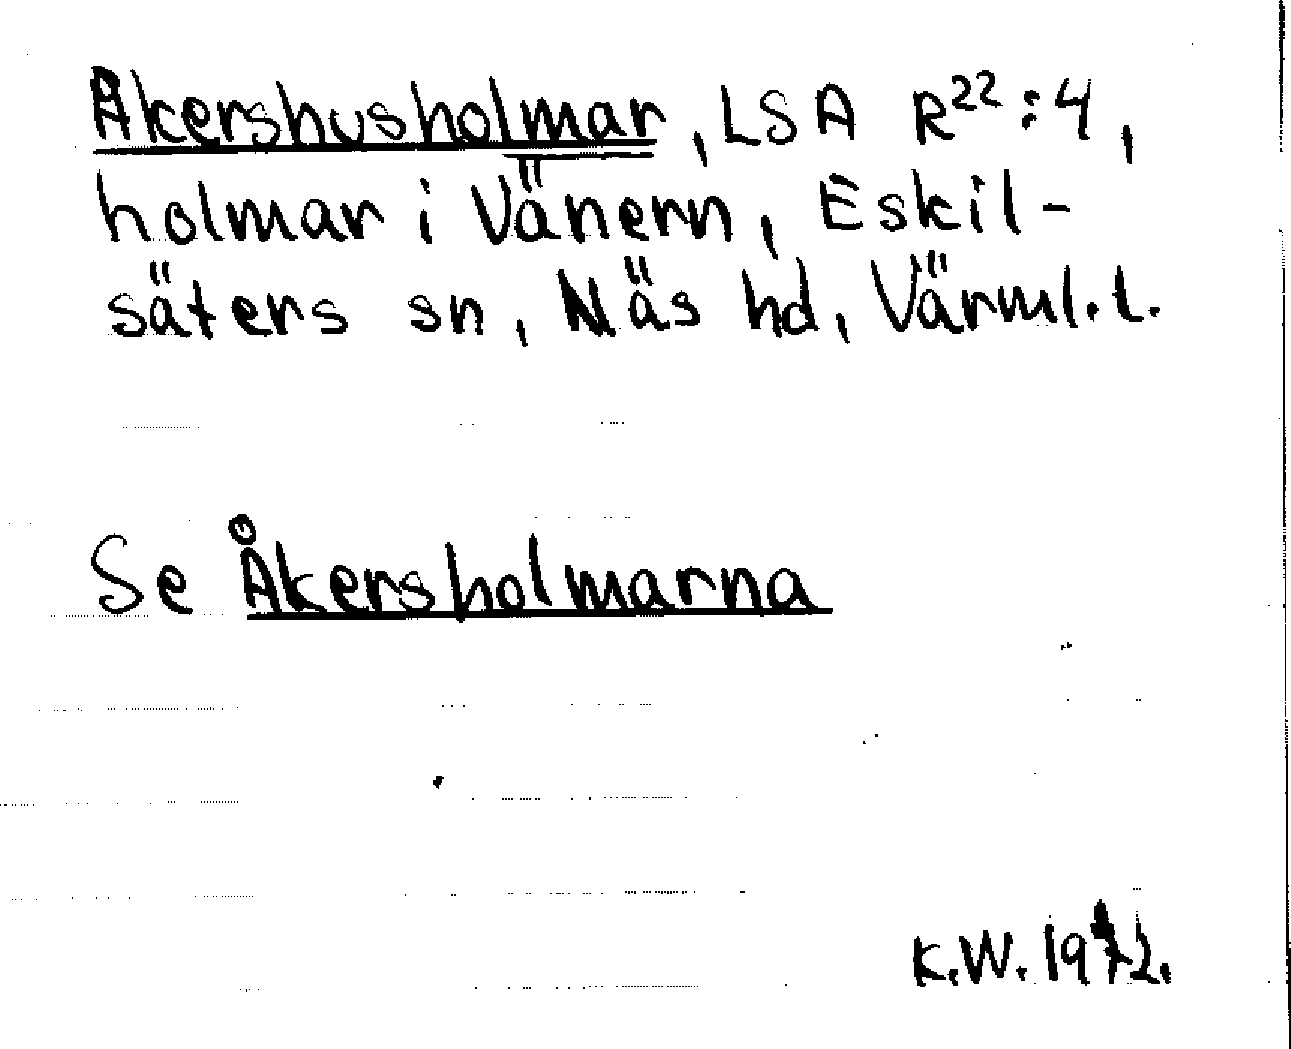 Åkershusholmar, LSA R²²:4,
holmar i Vänern, Eskil-
säters sn, Näs hd, Värml. l.
Se Åkersholmarna
K.W. 1972.